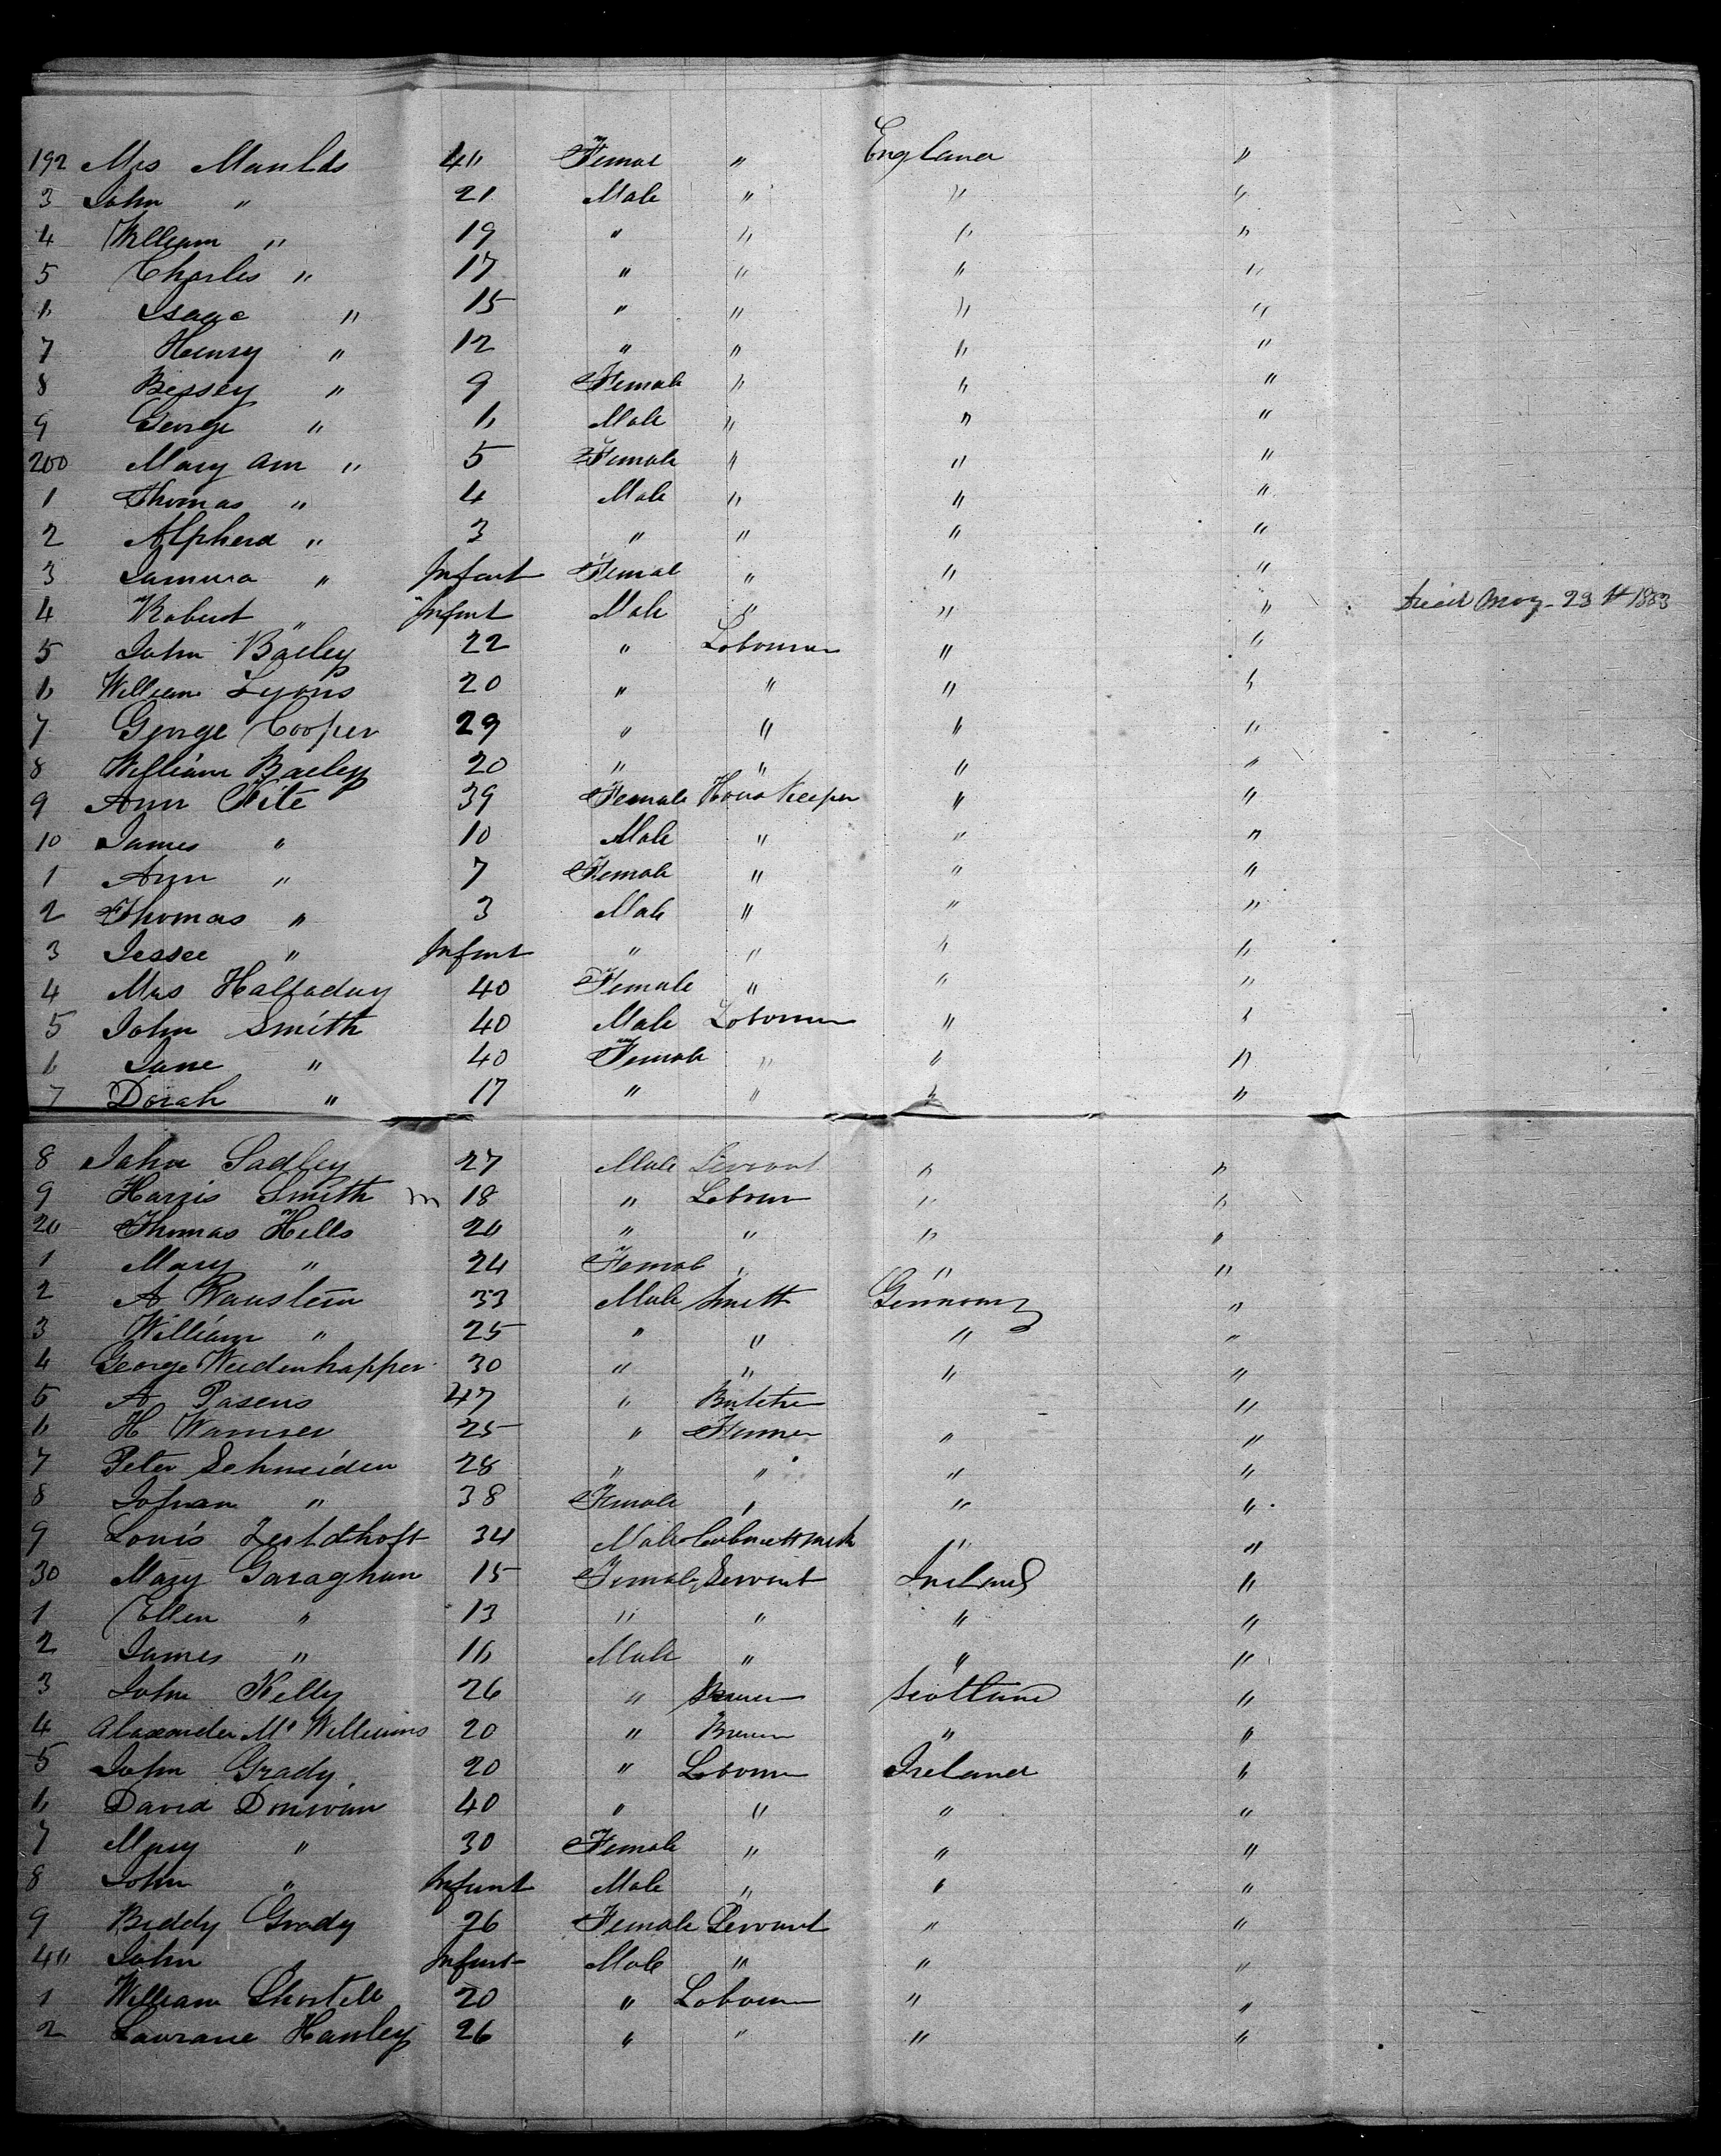 192 Mrs Maulds 40 Female " England "
3 John " 21 Male " " "
4 William " 19 " " " "
5 Charles " 17 " " " "
6 Isaac " 15 " " " "
7 Henry " 12 " " " "
8 Bessey " 9 Female " " "
9 George " 6 Male " " "
200 Mary Ann " 5 Female " " "
1 Thomas " 4 Male " " "
2 Alpherd " 3 " " " "
3 " Infant Female " " "
4 Robert " Infant Male " " " Died May 23 1883
5 John Bailey 22 " Labourer " "
6 William Lyons 20 " " " "
7 George Cooper 29 " " " "
8 William Bailey 20 " " " "
9 Ann Fite 39 Female House Keeper " "
10 James " 10 Male " " "
1 Ann " 7 Female " " "
2 Thomas " 3 Male " " "
3 Jessee " Infant " " " "
4 Mrs Halfaday 40 Female " " "
5 John Smith 40 Male Labourer " "
6 Jane " 40 Female " " "
7 Dorah " 17 " " " "
8 John Sadley 27 Male Servant " "
9 Harris Smith m 18 " Labour " "
20 Thomas Hells 20 " " " "
1 Mary " 24 Female " " "
2 A 33 Male Smith Germany "
3 William " 25 " " " "
4 George Weidenhapper 30 " " " "
5 A Pasens 47 " Butcher "
6 H Wamser 25 " Farmer " "
7 Peter Schneider 28 " " " "
8 Johan " 38 Female " " "
9 Louis 34 Male " "
30 Mary Garaghan 15 Female Servant Ireland "
1 Ellen " 13 " " " "
2 James " 16 Male " " "
3 John Kelly 26 " Scotland "
4 Alaxander Mc Williams 20 " " "
5 John Grady 20 " Labourer Ireland "
6 David Donivan 40 " " " "
7 Mary " 30 Female " " "
8 John " Infant Male " " "
9 Biddy Grady 26 Female Servant " "
40 John " Infant Male " " "
1 William Shortell 20 " Labourer " "
2 Laurane Hanley 26 " " " "